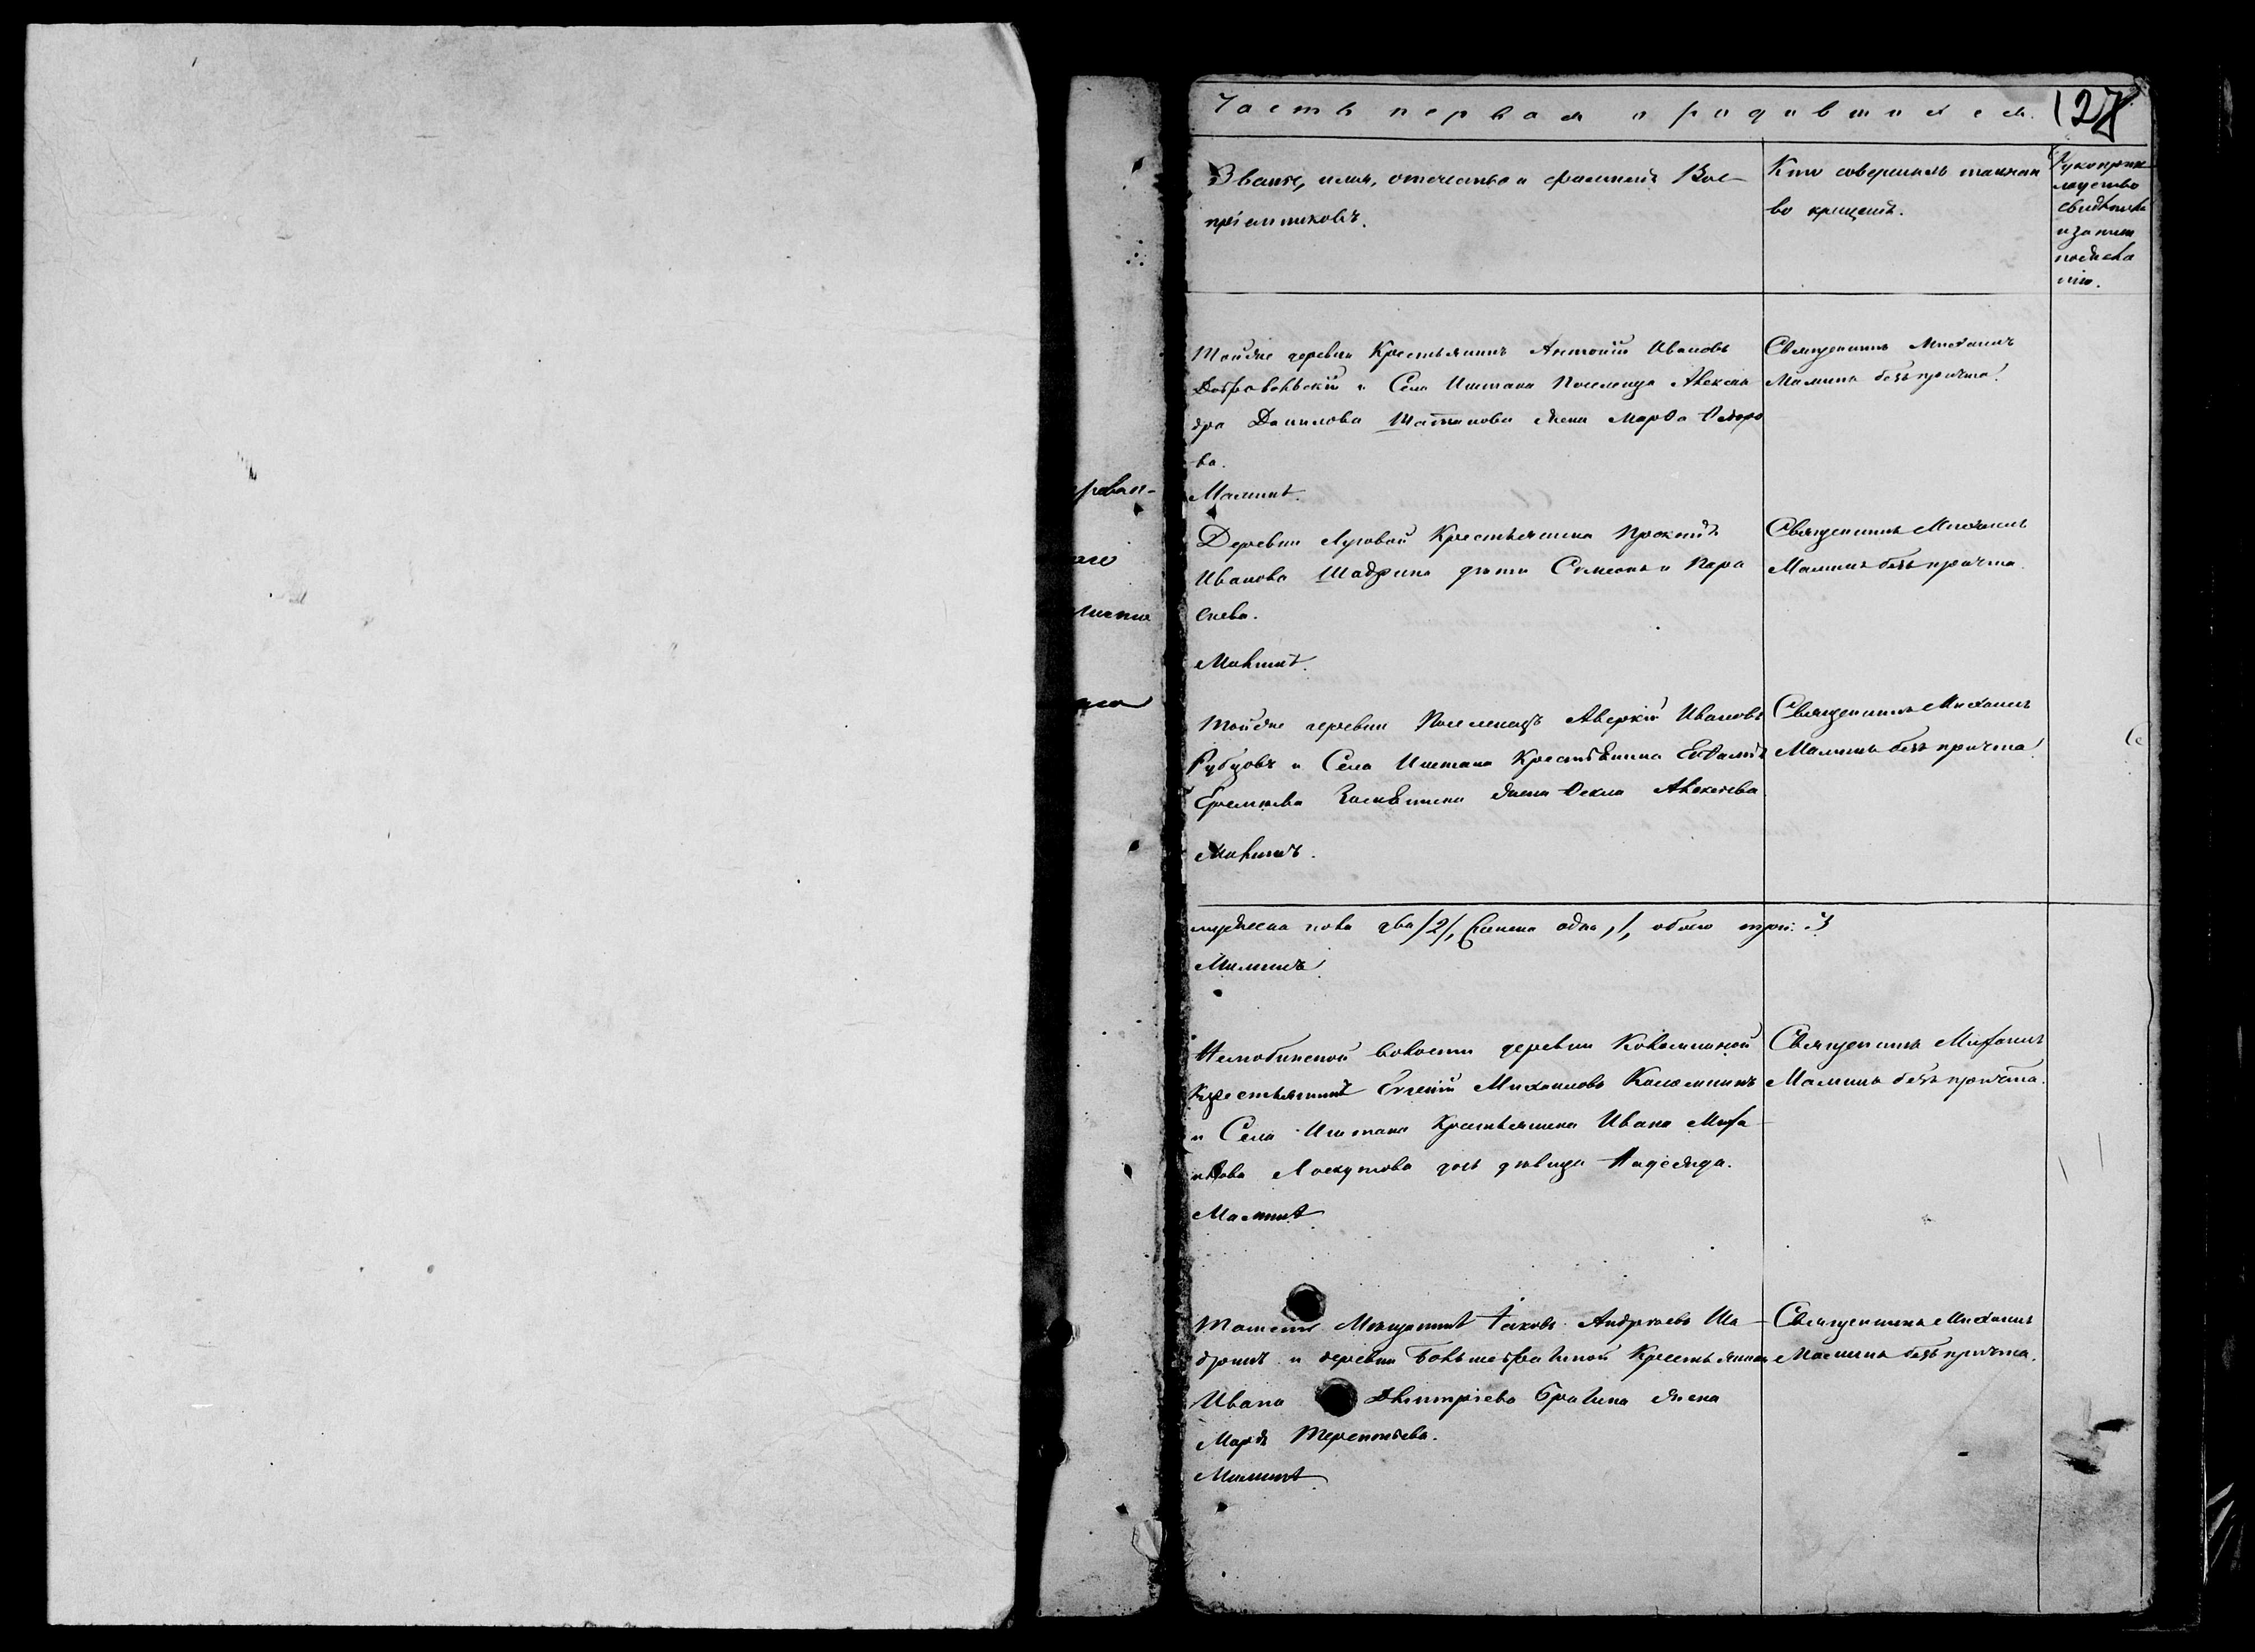 Часть первая о родившихся. 127
Званіе, имя, отечество и фамилія Вос-
пріемниковъ.
Кто совершалъ таинст
во крещенія.
Рукоприк-
ладство
свидѣтеле
и записи
по жела
нію.
Тойже деревни Крестьянинъ Антоній Ивановъ
Добровольскій и Села Иштана Поселенца Алексан
дра Данилова жена Марѳа Ѳедоро
ва.
Маминъ.
Священникъ Михаилъ
Маминъ безъ причта.
Деревни Луговой Крестьянина Прокопія
Иванова Шадрина дѣти Симеонъ и Пара
скева.
Маминъ.
Священникъ Михаилъ
Маминъ безъ причта.
Тойже деревни Поселенецъ Аверкій Ивановъ
Рубцовъ и Села Иштана Крестьянина
Еремѣева жена Ѳекла Алексѣева
Маминъ.
Священникъ Михаилъ
Маминъ безъ причта.
мужеска пола два /2/, женска одна ,1, обоего три: 3
Маминъ.
Нелюбинской волости деревни
Крестьянинъ Евгеній Михаиловъ Коломинъ
и Села Иштана Крестьянина Ивана Миха
илова Лоскутова дочь дѣвица Надежда.
Маминъ
Священникъ Михаилъ
Маминъ безъ причта.
Томскій Мѣщанинъ Іаковъ Андреевъ Ша
дринъ и деревни Крестьянина
Ивана Дмитріева Брагина жена
Марія Терентьева.
Маминъ
Священникъ Михаилъ
Маминъ безъ причта.